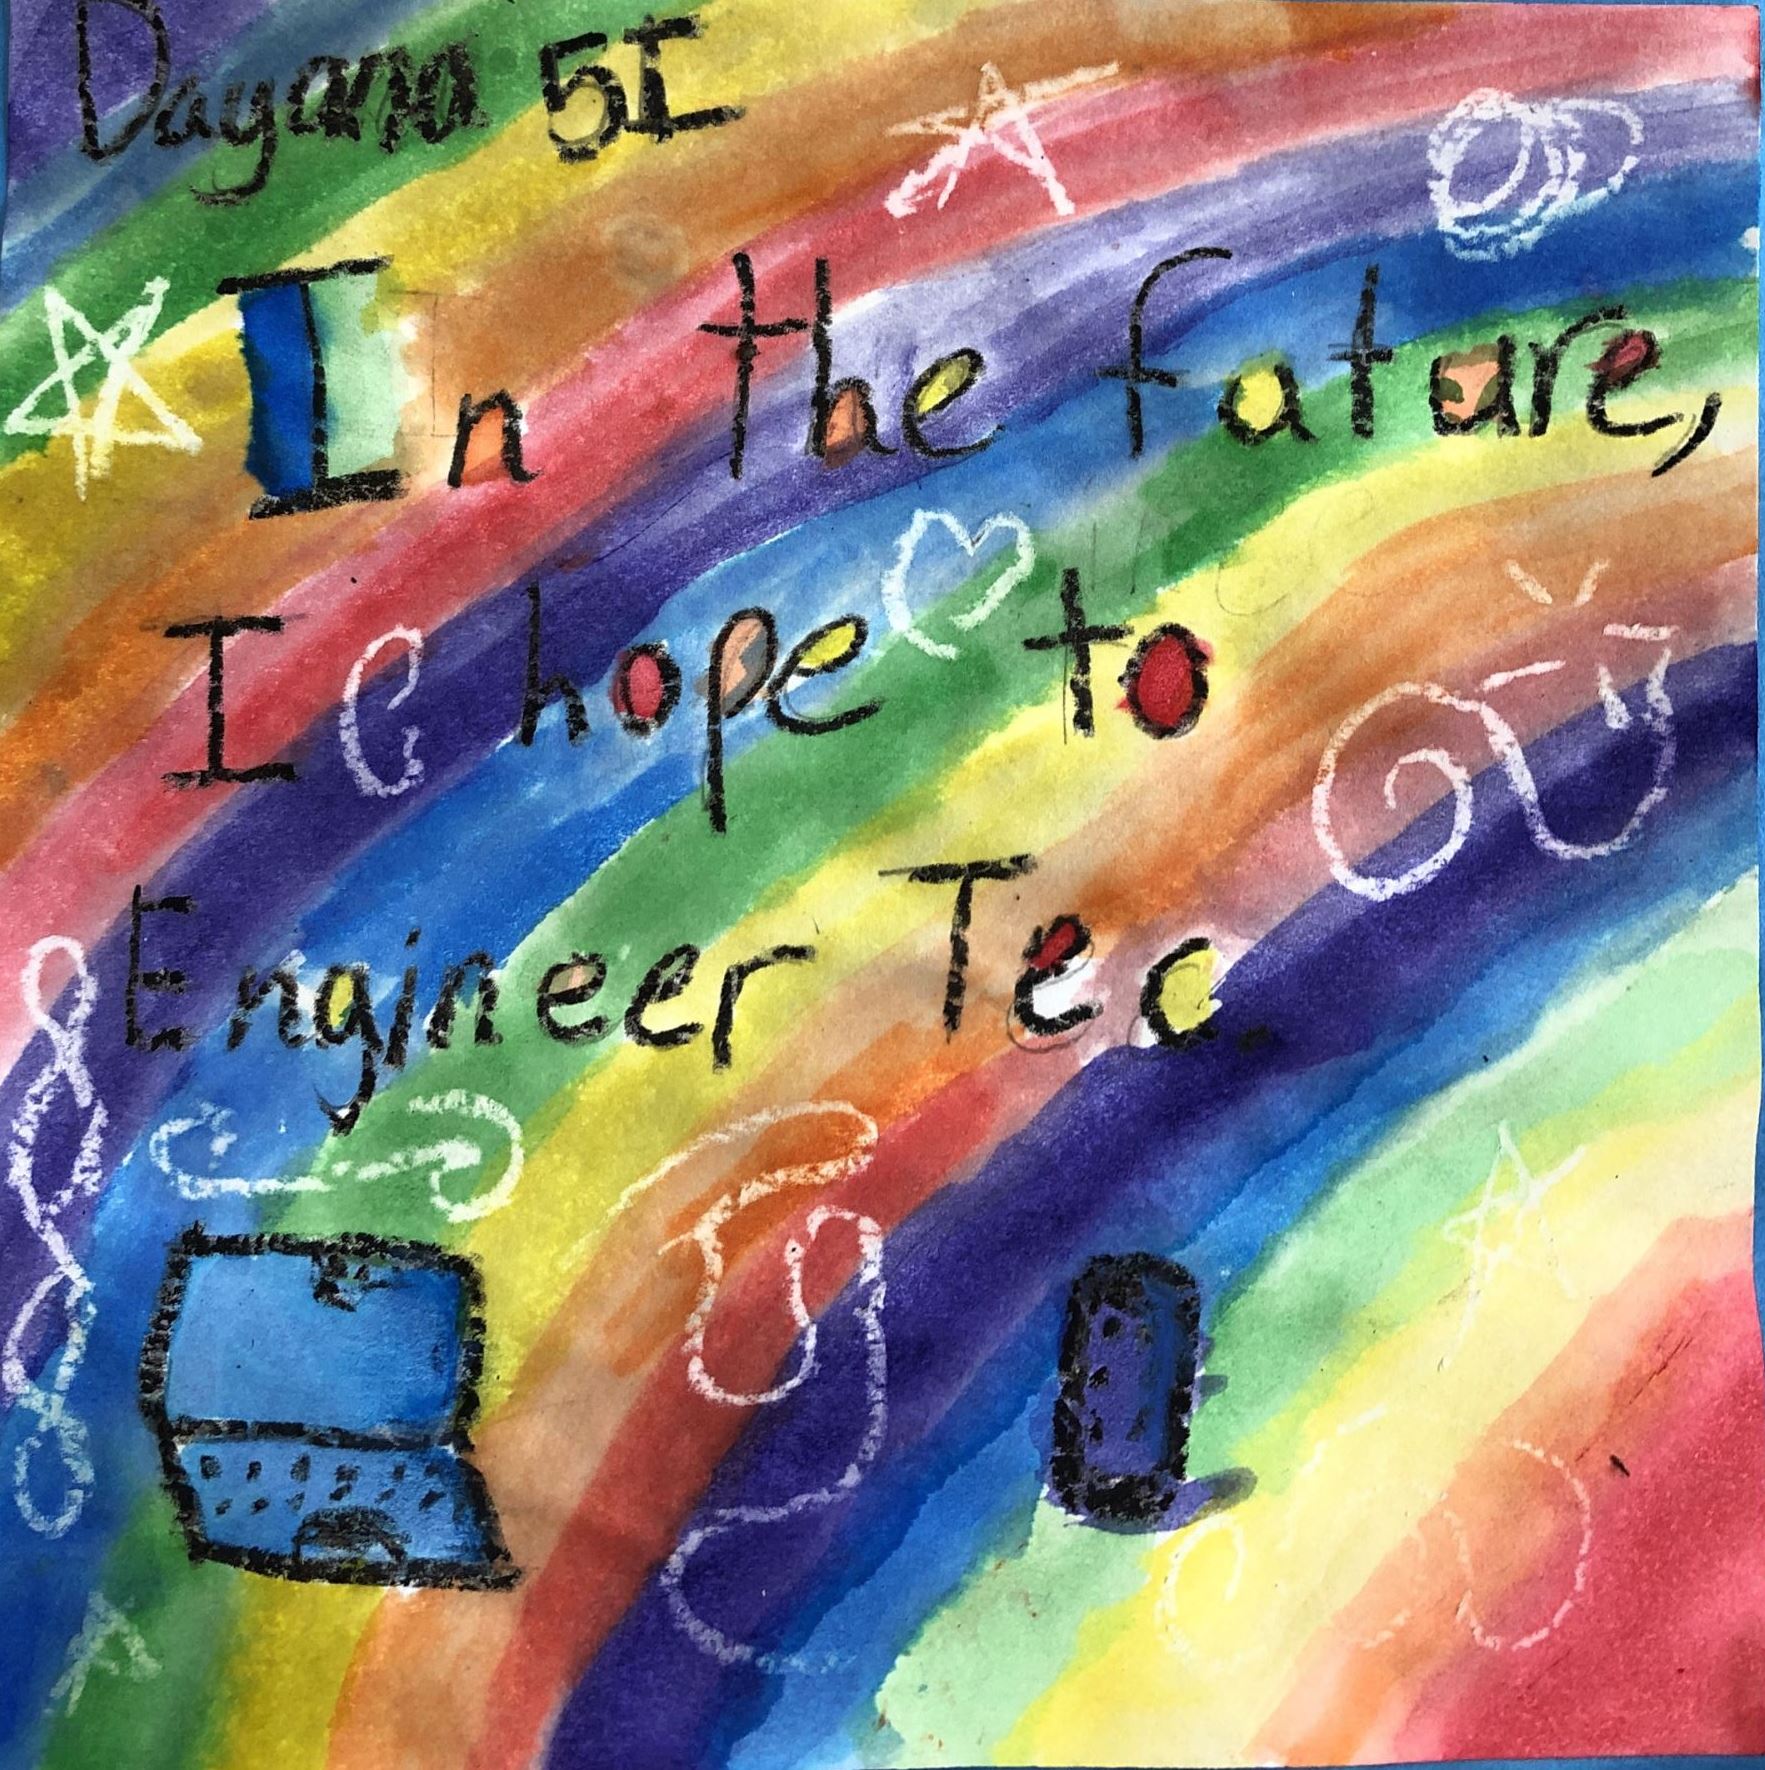 Dayana 5I
In the future,
I hope to
Engineer Tec.